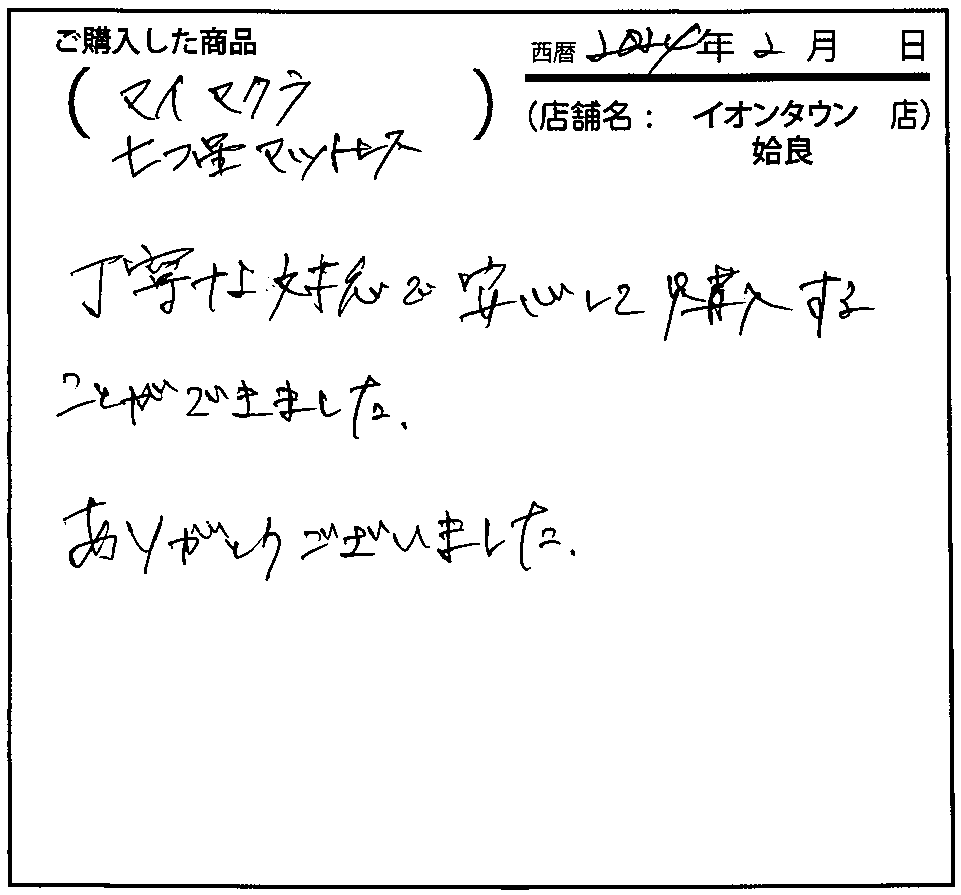 ご購入した商品
西暦 2024年 2月 日
(マイマクラ
七つ星マットレス)
(店舗名： イオンタウン 店)
姶良
丁寧な対応で安心して購入する
ことができました.
ありがとうございました.